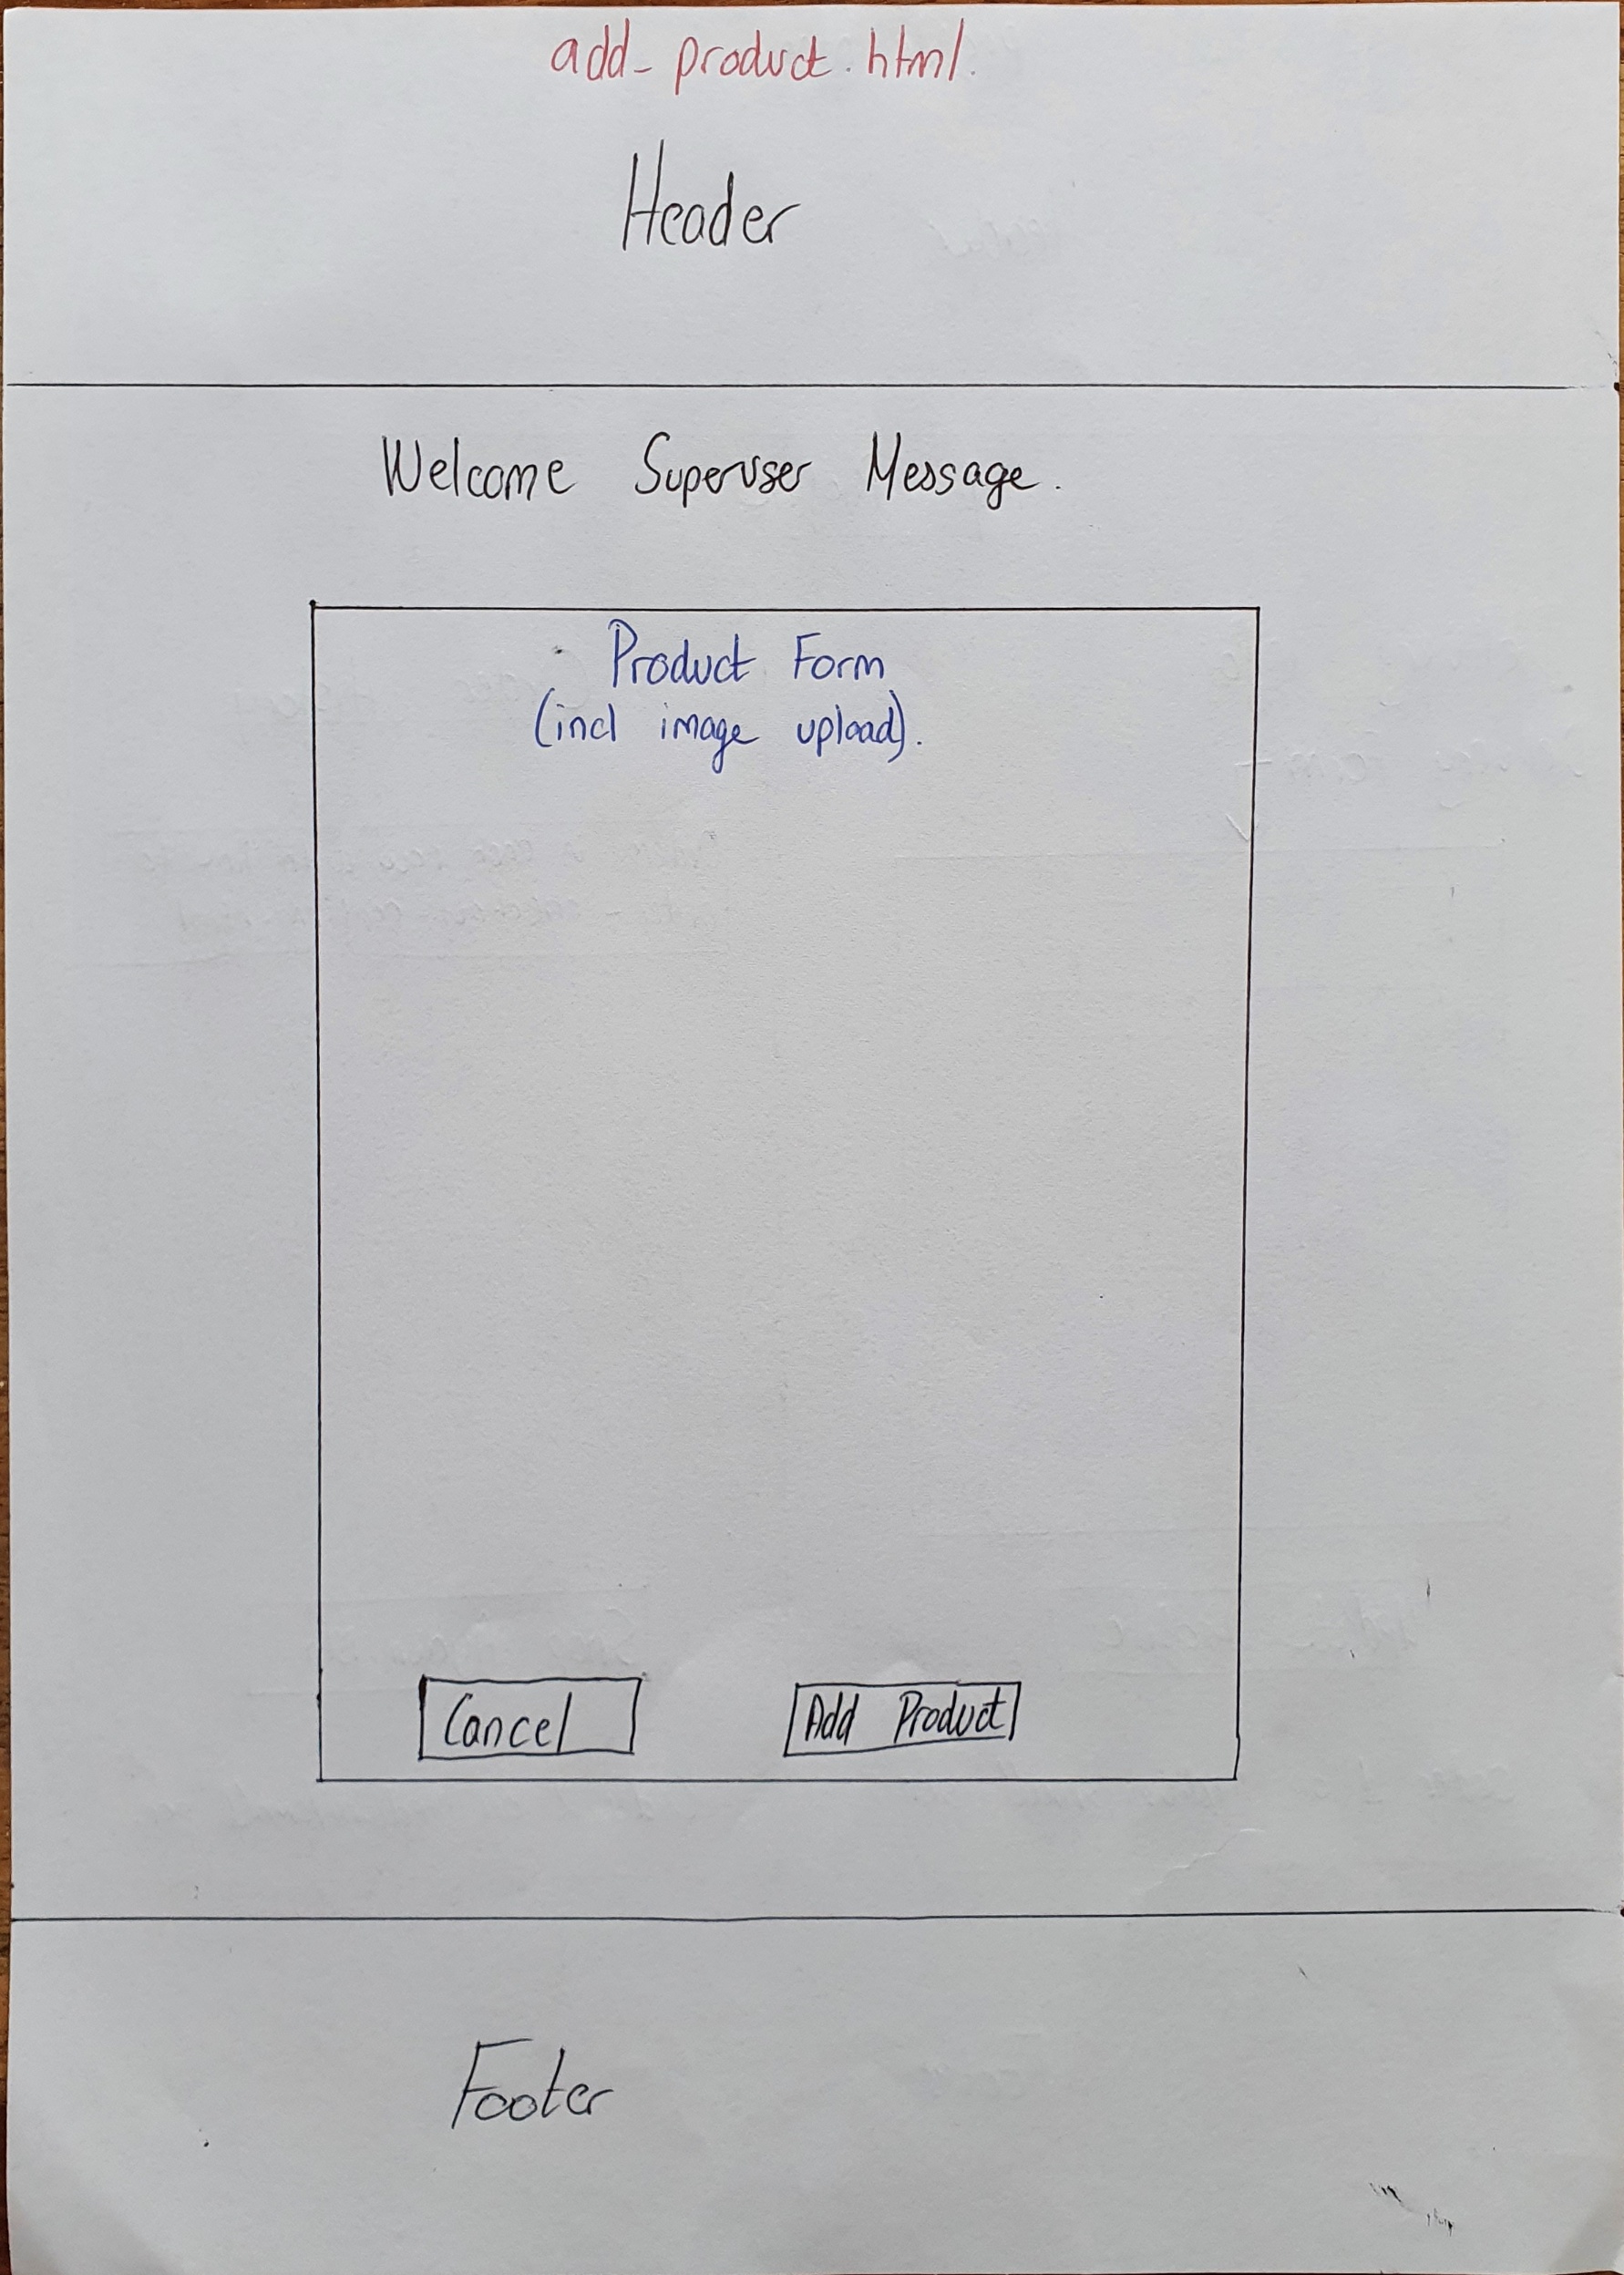 add_product.html.
Header
Welcome Superuser Message.
Product Form
(incl image upload).
Cancel
Add Product
Footer